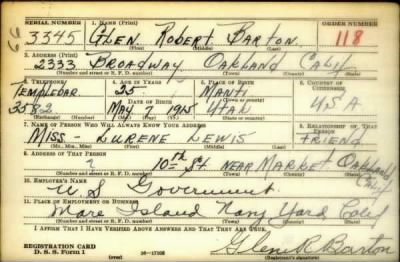 SERIAL NUMBER 1. NAME (Print) ORDER NUMBER
3345 GLEN ROBERT BARTON 118
(First) (Middle) (Last)
2. ADDRESS (Print)
2333 BROADWAY OAKLAND CALIF
(Number and street or R. F. D. number) (Town) (County) (State)
3. TELEPHONE 4. AGE IN YEARS 5. PLACE OF BIRTH 6. COUNTRY OF CITIZENSHIP
TEMPLEBAR 25 MANTI
DATE OF BIRTH (Town or county) U S A
3582 MAY 7 1915 UTAH
(Exchange) (Number) (Mo.) (Day) (Yr.) (State or country)
7. NAME OF PERSON WHO WILL ALWAYS KNOW YOUR ADDRESS 8. RELATIONSHIP OF THAT PERSON
MISS - LURENE LEWIS FRIEND
(Mr., Mrs., Miss) (First) (Middle) (Last)
9. ADDRESS OF THAT PERSON
? 10th ST. NEAR MARKET OAKLAND CALIF
(Number and street or R. F. D. number) (Town) (County) (State)
10. EMPLOYER'S NAME
U.S Government
11. PLACE OF EMPLOYMENT OR BUSINESS
Mare Island Navy Yard Calif
(Number and street or R. F. D. number) (Town) (County) (State)
I AFFIRM THAT I HAVE VERIFIED ABOVE ANSWERS AND THAT THEY ARE TRUE.
REGISTRATION CARD
D. S. S. Form 1 (over) 16-17105 Glen R Barton